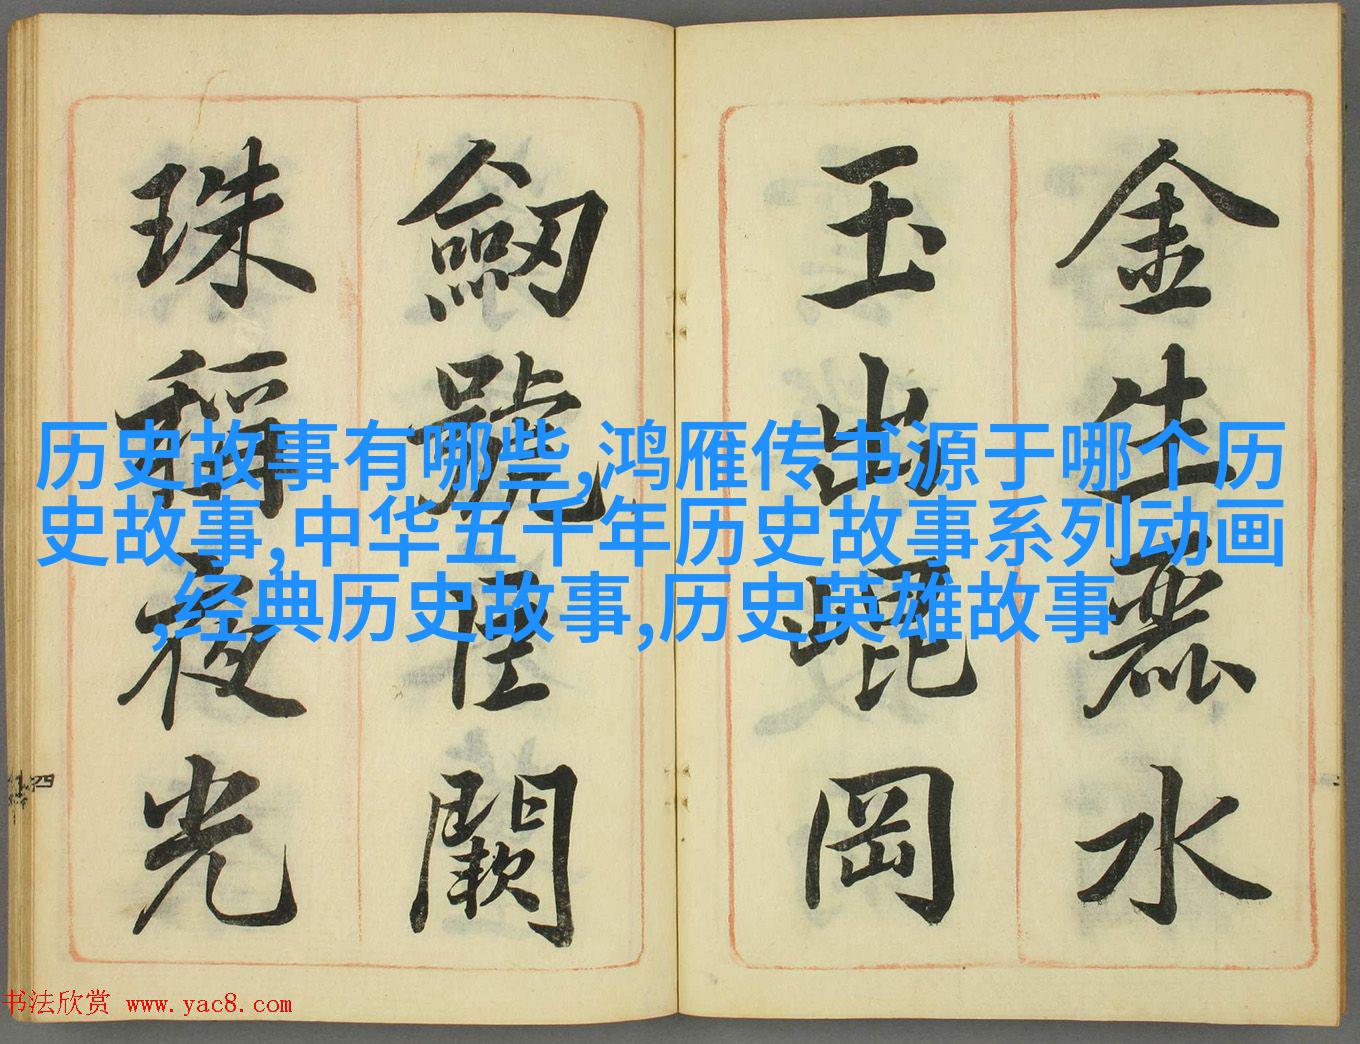 金生麗水
玉出崐岡
劒號巨闕
珠稱夜光
历史故事有哪些,鸿雁传书源于哪个历
史故事,中华五千年历史故事系列动画
,经典历史故事,历史英雄故事
四
书法欣赏 www.yac8.com